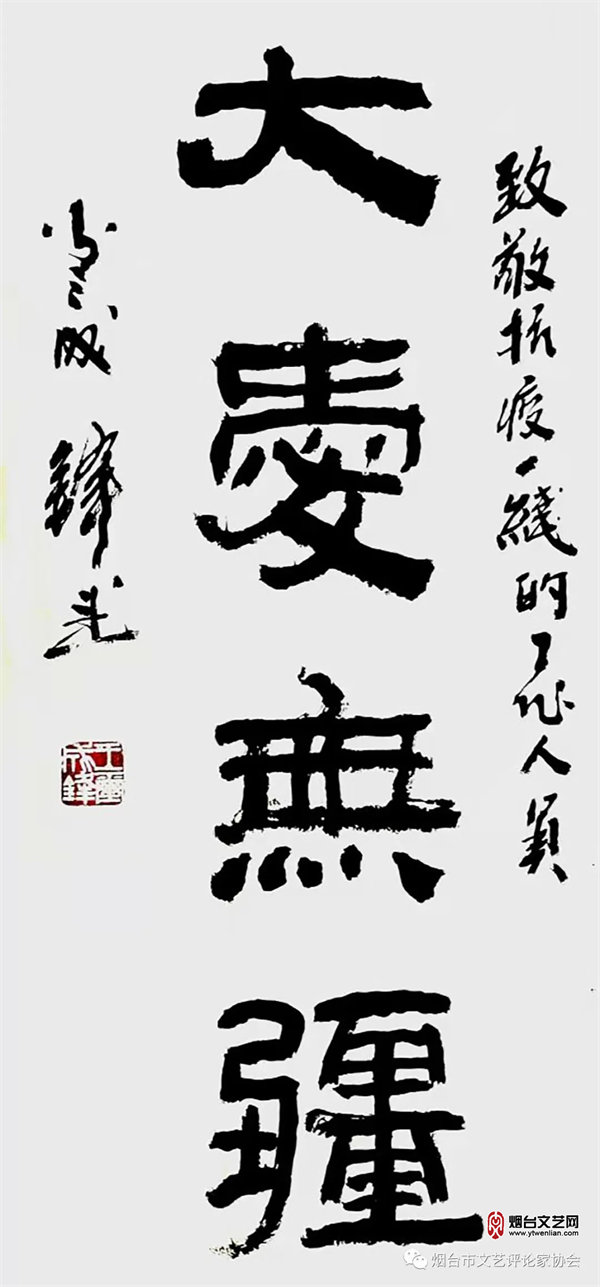 致敬抗疫一綫的工作人員
大愛無疆
烟台文艺网
www.ytwenlian.com
烟台市文艺评论家协会